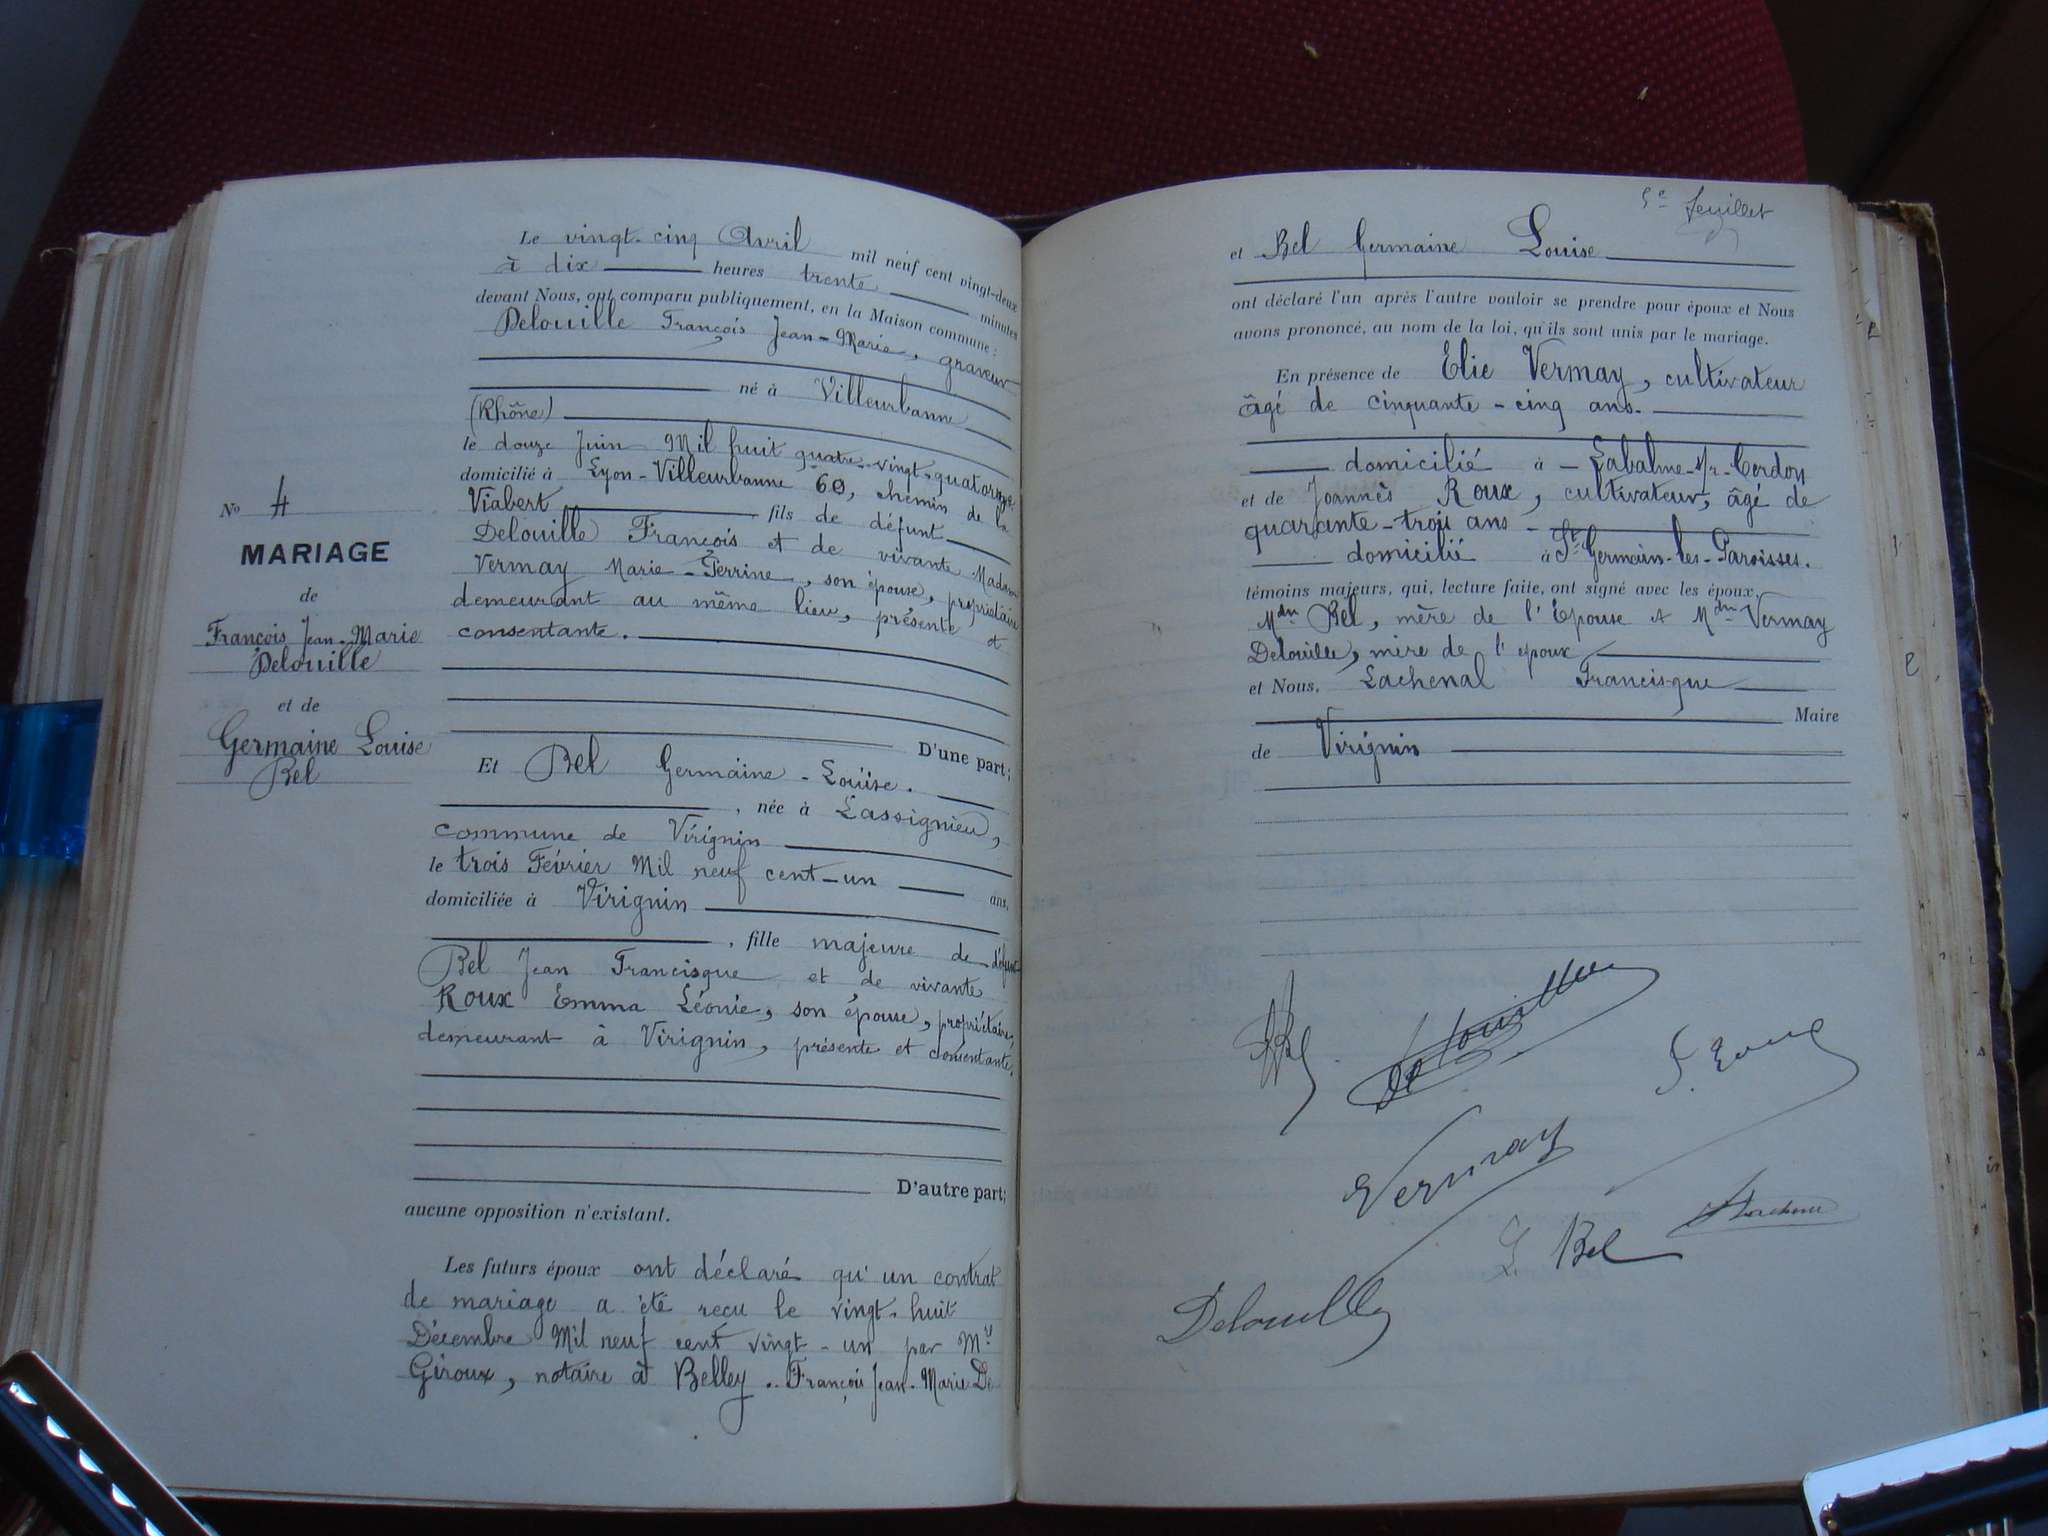 Nº 4
MARIAGE
de
François Jean-Marie
Delouille
et de
Germaine Louise
Bel
Le vingt-cinq Avril mil neuf cent vingt-deux
à dix heures trente minutes
devant Nous, ont comparu publiquement, en la Maison commune :
Delouille François Jean-Marie, graveur
né à Villeurbanne
(Rhône)
le douze Juin Mil huit quatre-vingt-quatorze
domicilié à Lyon-Villeurbanne 60, chemin de la
Viabert fils de défunt
Delouille François et de vivante Madame
Vermay Marie-Perrine, son épouse, propriétaire
demeurant au même lieu, présente et
consentante.
D'une part;
Et Bel Germaine-Louise.
, née à Lassignieu,
commune de Virignin
le trois Février Mil neuf cent-un ans.
domiciliée à Virignin
, fille majeure de défunt
Bel Jean Francisque et de vivante
Roux Emma Léonie, son épouse, propriétaire,
demeurant à Virignin, présente et consentante.
D'autre part;
aucune opposition n'existant.
Les futurs époux ont déclaré qu'un contrat
de mariage a été reçu le vingt-huit
Décembre Mil neuf cent vingt-un par
Giroux, notaire à Belley.. François Jean-Marie De
5e feuillet
et Bel Germaine Louise
ont déclaré l'un après l'autre vouloir se prendre pour époux et Nous
avons prononcé, au nom de la loi, qu'ils sont unis par le mariage.
En présence de Elie Vermay, cultivateur
âgé de cinquante-cinq ans.
domicilié à Labalme-s/r-Cerdon
et de Joannès Roux, cultivateur, âgé de
quarante-trois ans
domicilié à St Germain-les-Paroisses.
témoins majeurs, qui, lecture faite, ont signé avec les époux,
Bel, mère de l'Epouse et Vermay
Delouille, mère de l'époux
et Nous, Lachenal Francisque
Maire
de Virignin
Delouille
Vermay
L. Bel
Delouille